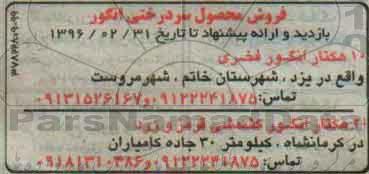 فروش محصول سردرختی انگور
بازدید و ارائه پیشنهاد تا تاریخ ۱۳۹۶/۰۲/۳۱
۱۰هکتار انگور فخری
واقع در یزد، شهرستان خاتم، شهرمروست
تماس:۰۹۱۲۲۲۴۱۸۷۵و۰۹۱۳۱۵۲۶۱۶۷
۲۰هکتار انگور کشمشی قرمز و زرد
در کرمانشاه، کیلومتر ۳۰ جاده کامیاران
تماس:۰۹۱۲۲۲۴۱۸۷۵و۰۹۱۸۱۳۱۰۳۸۶
ParsNamadData